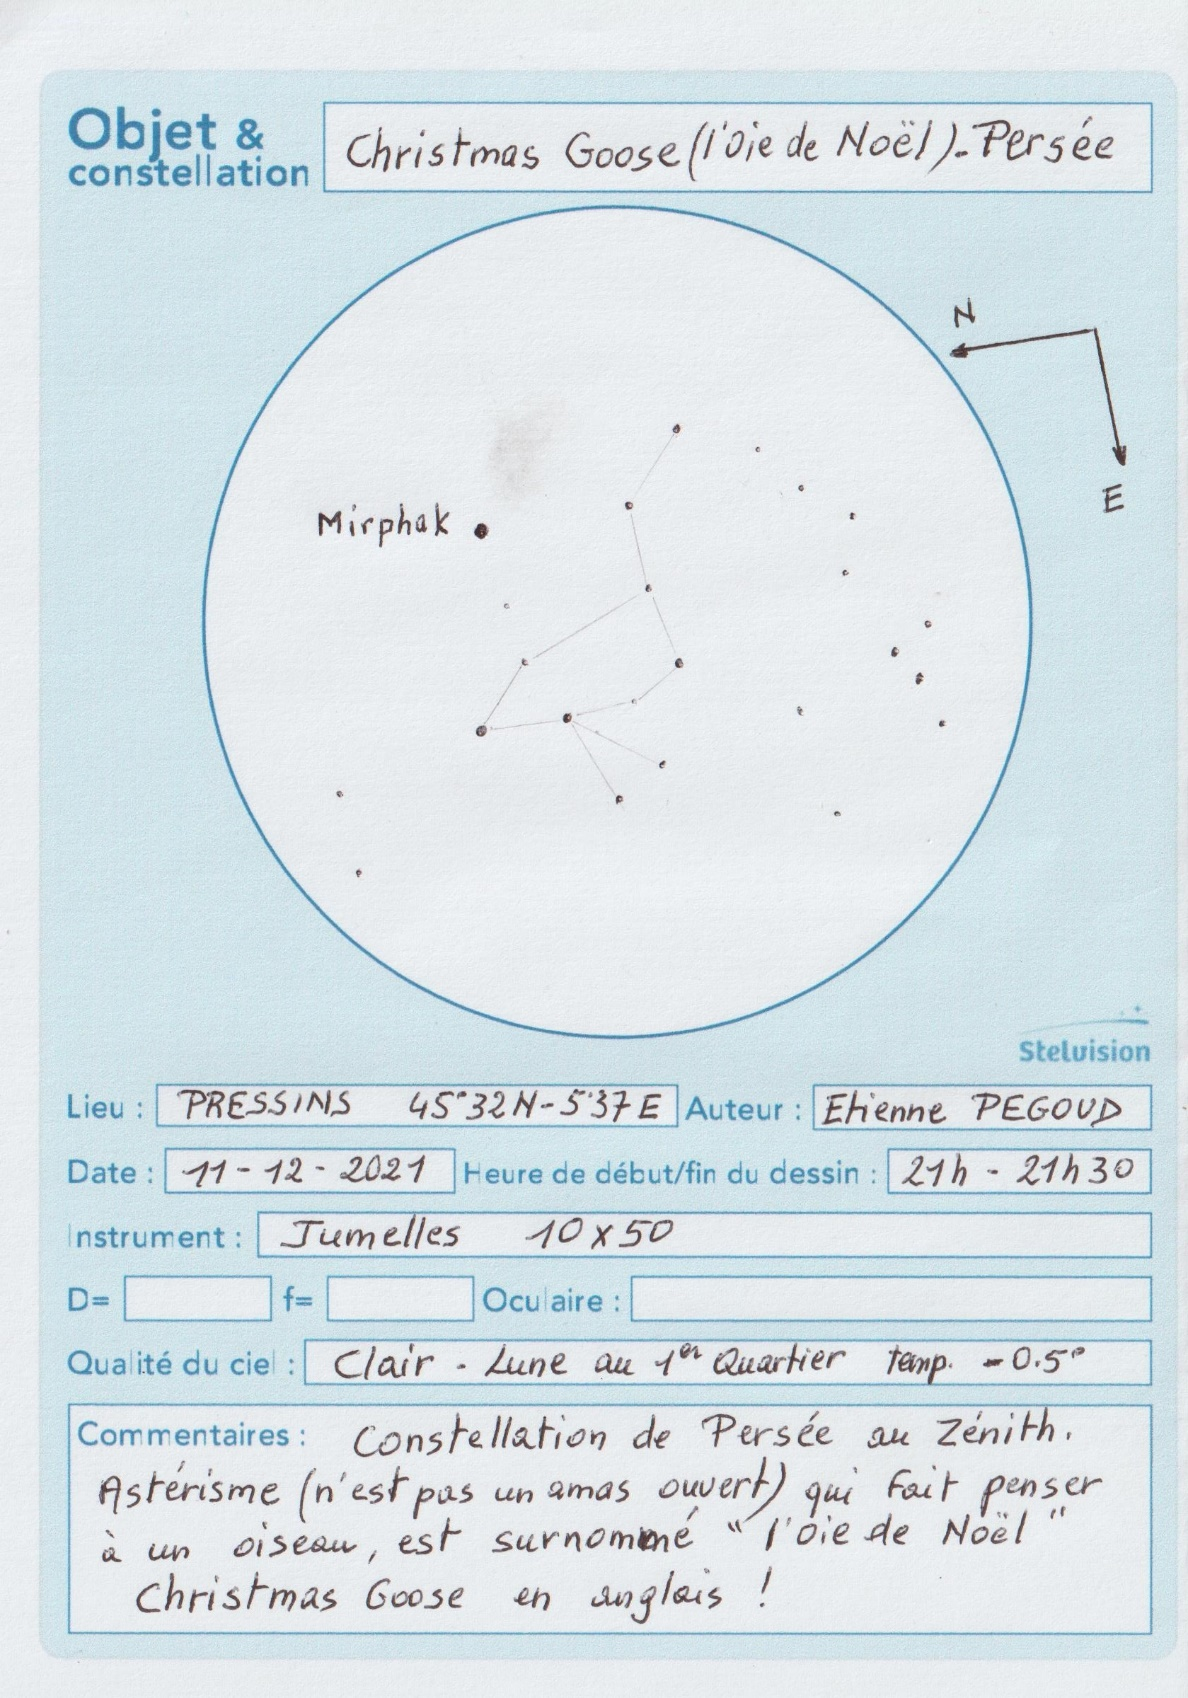 Objet & constellation Christmas Goose (l'Oie de Noël). Persée
N
E
Mirphak
Stelvision
Lieu : PRESSINS 45°32N-5°37E Auteur : Etienne PEGOUD
Date : 11-12-2021 Heure de début/fin du dessin : 21h - 21h30
Instrument : Jumelles 10x50
D= f= Oculaire :
Qualité du ciel : Clair - Lune au 1er Quartier temp. -0.5°
Commentaires : Constellation de Persée au Zénith.
Astérisme (n'est pas un amas ouvert) qui fait penser
à un oiseau, est surnommé "l'Oie de Noël"
Christmas Goose en anglais !